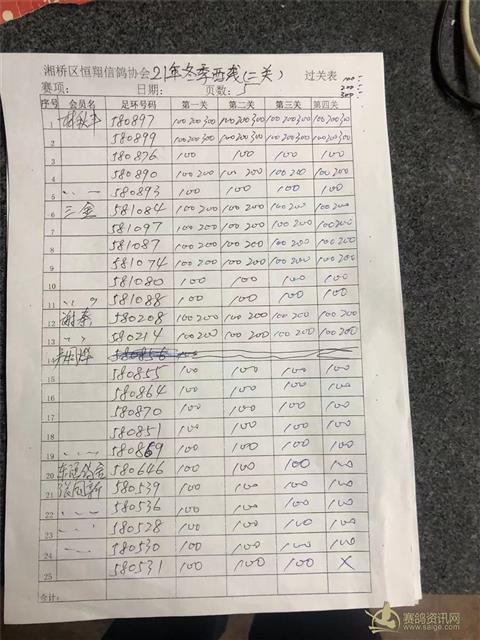 湘桥区恒翔信鸽协会21年冬季西线(二关) 过关表 100
赛项: 日期: 页数: 5 200
300
序号 会员名 足环号码 第一关 第二关 第三关 第四关
1 林秋丰 580897 100 200 300 100 200 300 100 200 300 100 200 300
2 580899 100 200 300 100 200 300 100 200 300 100 200 300
3 580876 100 100 100 100
4 580890 100 200 100 200 100 200 100 200
5 580893 100 100 100 100
6 三金 581084 100 200 100 200 100 200 100 200
7 581097 100 200 100 200 100 200 100 200
8 581087 100 200 100 200 100 200 100 200
9 581074 100 200 100 200 100 200 100 200
10 581080 100 100 100 100
11 581088 100 100 100 100
12 谢泰 580208 100 200 100 200 100 200 100 200
13 580214 100 200 100 200 100 200 100 200
14 580856 100
15 580855 100 100 100 100
16 580864 100 100 100 100
17 580870 100 100 100 100
18 580851 100 100 100 100
19 580869 100 100 100 100
20 580646 100 100 100 100
21 580539 100 100 100 100
22 580536 100 100 100 100
23 580528 100 100 100 100
24 580530 100 100 100 100
25 580531 100 100 100 X
合计:
赛鸽资讯网
www.saige.com